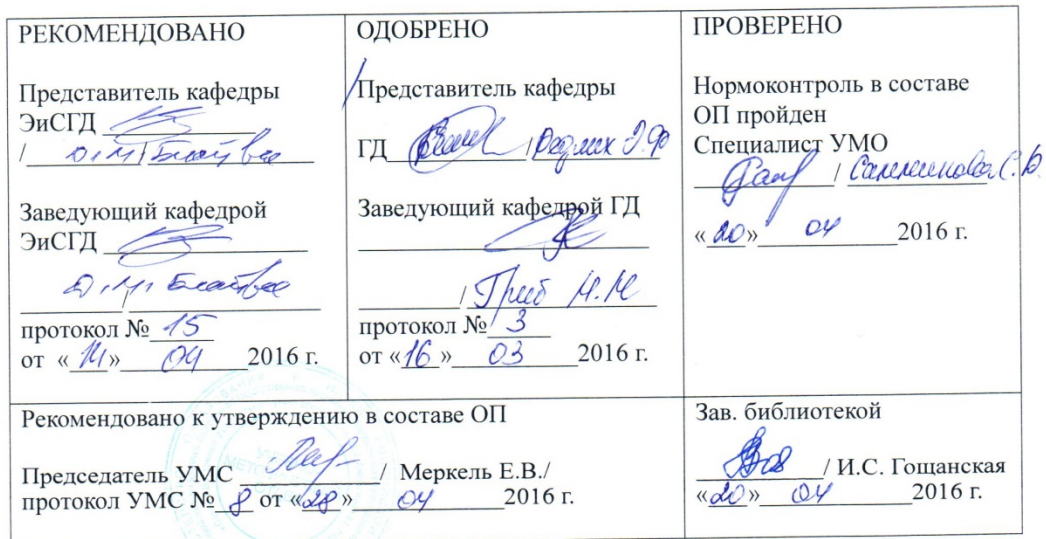 РЕКОМЕНДОВАНО
Представитель кафедры
ЭиСГД
/
Заведующий кафедрой
ЭиСГД
/
протокол № 15
от «14» 04 2016 г.
ОДОБРЕНО
Представитель кафедры
ГД / Редлих Э.Ф
Заведующий кафедрой ГД
/ Гриб Н.Н
протокол № 3
от «16» 03 2016 г.
ПРОВЕРЕНО
Нормоконтроль в составе
ОП пройден
Специалист УМО
/
«20» 04 2016 г.
Рекомендовано к утверждению в составе ОП
Председатель УМС / Меркель Е.В./
протокол УМС № 8 от «28» 04 2016 г.
Зав. библиотекой
/ И.С. Гощанская
«20» 04 2016 г.